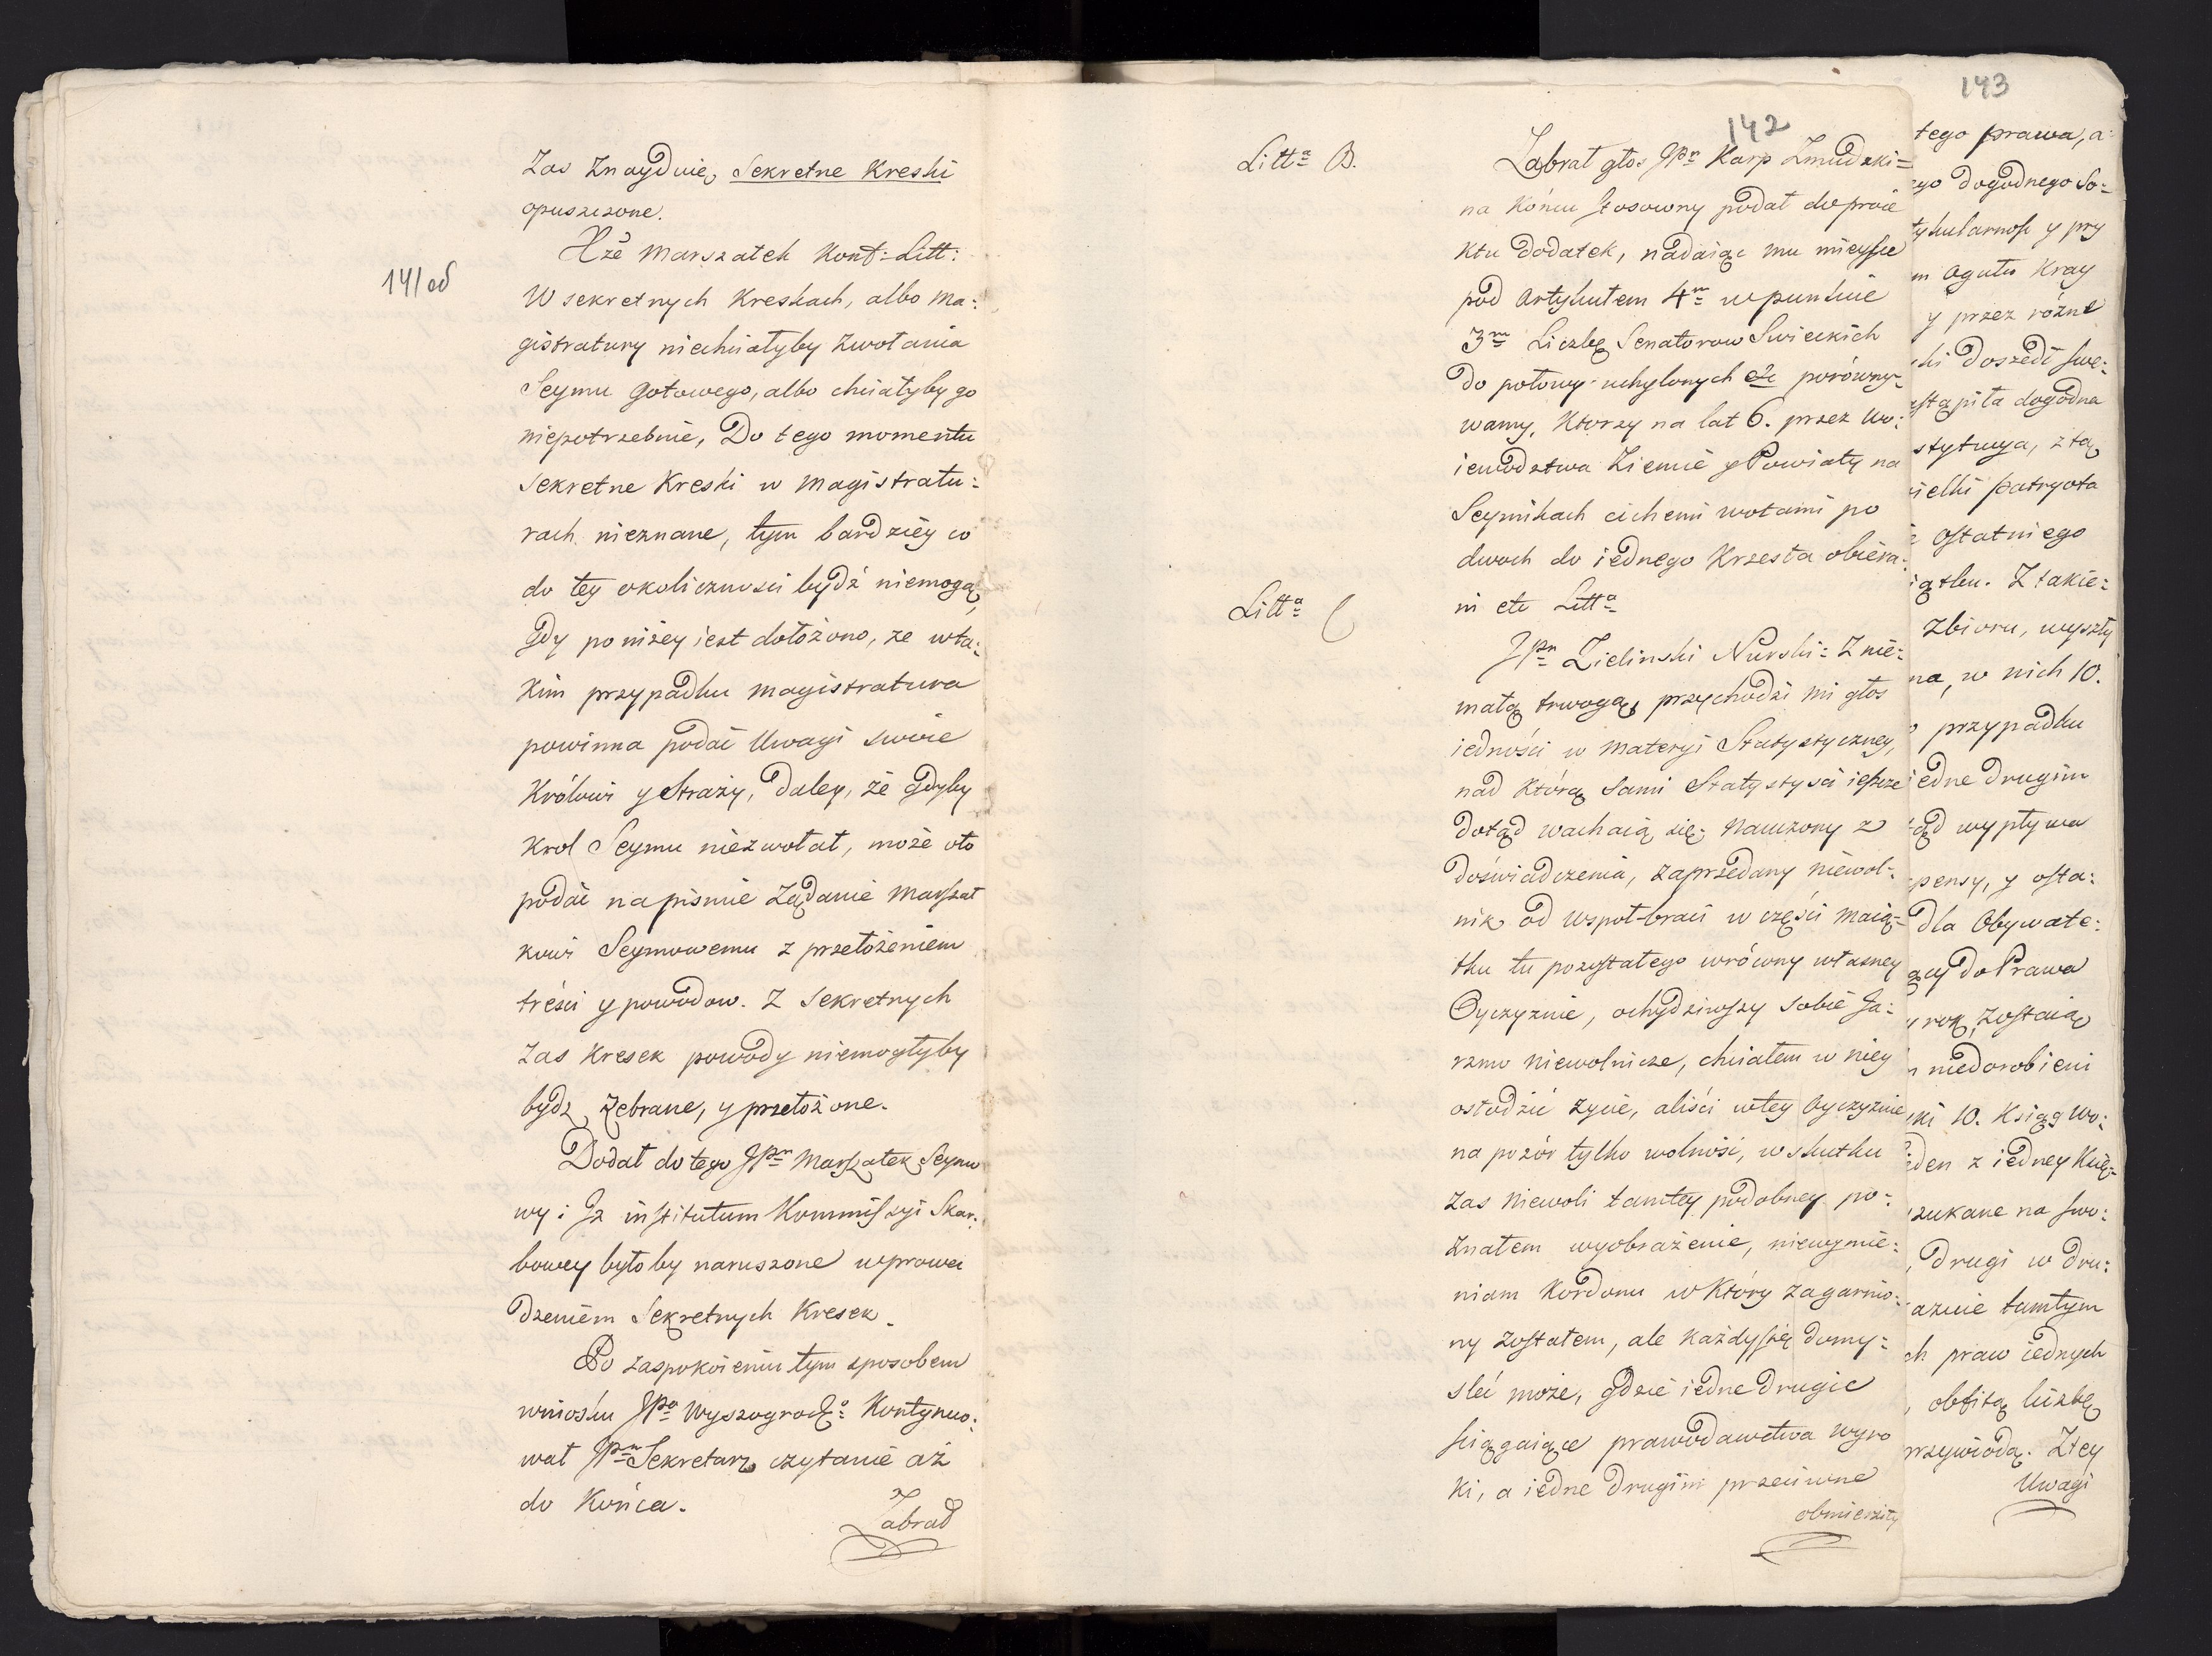 141 od
Zas Znayduię, Sekretne Kreski
opuszczone.
Xże Marszałek Konf: Litt:
W sekretnych Kreskach, albo Ma:
gistratury niechciałyby Zwołania
Seymu gotowego, albo chciałyby go
niepotrzebnie, Do tego momentu
Sekretne Kreski w Magistratu:
rach nieznane, tym bardziey co
do tey okoliczności bydź niemogą,
Gdy poniżey iest dołożono, że wta:
kim przypadku Magistratura
powinna podać Uwagi swoie
Królowi y Straży, Daley, że Gdyby
Krol Seymu niezwołał, może oto
podać napismie Żądanie Marszał
kowi Seymowemu z przełożeniem
treści y powodow. Z Sekretnych
Zas Kresek powody niemogłyby
bydz Zebrane, y przełożone.
Dodał do tego JPn Marszałek Seymo
wy: Iz institutum Kommissyi Skar:
bowey byłoby naruszone wprowa
dzeniem Sekretnych Kresek.
Po zaspokoieniu tym sposobem
wniosku JPa Wyszogrodgo Kontynuo:
wał JPn Sekretarz czytanie aż
do Końca.
Zabrał
142
Litta B.
Zabrał głos JPn Karp Zmudzki=
na Końcu stosowny podał do proie
ktu Dodatek, nadaiąc mu mieysce
pod Artykułem 4m w punkcie
3m Liczbę Senatorow Swieckich
Do połowy uchylonych etc porówny=
wamy, Ktorzy na lat 6. przez Wo:
iewodztwa Ziemie y Powiaty na
Seymikach cichemi wotami po
dwoch do iednego Krzesła obiera:
ni etc Litta
Litta C
JPn Zielinski Nurski= Z nie:
małą trwogą, przychodzi mi głos
iedności w materyi Statystyczney,
nad którą Sami Statystyści ieszcze
dotąd wachaią się; Nauczony z
Doświadczenia, zaprzedany niewol:
nik od wspoł-braci w części maią=
tku tu pozostałego wrówny własney
Oyczyznie, ochydziwszy sobie Ja:
rzmo niewolnicze, chciałem w niey
osłodzić życie, aliści wtey Oyczyznie
na pozór tylko wolność, wskutku
Zas Niewoli tamtey podobney po:
Znałem wyobrażenie, niewymie:
niam Kordonu w Który zagarnio:
ny Zostałem, ale Każdy się domy:
sleć może, gdzie iedne Drugie
ściągaiące prawodawctwa wyro
ki, a iedne Drugim przeciwne
obmierzły
143
tego prawa, a:
ego dogodnego So:
tykularność y pry
m Ogułu Kray
y przez różne
ki Doszedł swe:
stąpiła dogodna
stytucya, z tą
ielki patryota
Ostatniego
iątku. Z takie:
Zbioru, wyszły
na, w nich 10.
przypadku
iedne Drugim
tąd wypływa
pensy, y osta:
Dla Obywate:
ący do Prawa
y rok, Zostaią
niedorobieni
mi 10. Ksiąg Wo:
ieden z iedney Xię=
szukane na swo:
, Drugi w Dru:
aznie tamtym
ch praw iednych
, obfitą liczbę
przywiodą. Ztey
Uwagi